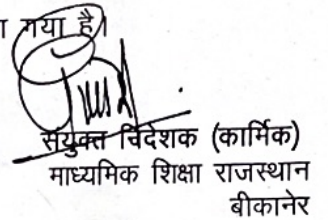 गया है।
संयुक्त निदेशक (कार्मिक)
माध्यमिक शिक्षा राजस्थान
बीकानेर